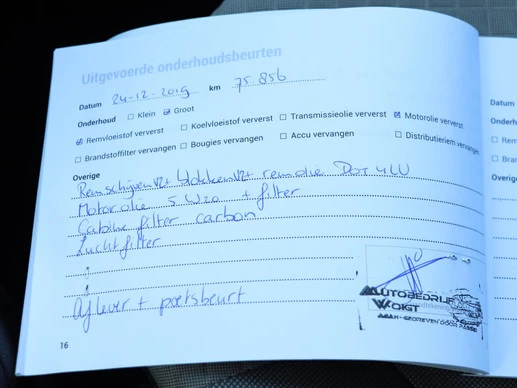 Uitgevoerde onderhoudsbeurten
Datum 24-12-2019 km 75.856
Onderhoud ☐ Klein ☑ Groot
☑ Remvloeistof ververst ☐ Koelvloeistof ververst ☐ Transmissieolie ververst ☒ Motorolie ververst
☐ Brandstoffilter vervangen ☐ Bougies vervangen ☐ Accu vervangen ☐ Distributieriem vervangen
Overige
Remschijven + blokken + remolie Dot 4 LV
Motorolie 5W20 + filter
Cabine filter carbon
Luchtfilter
Aflever + poetsbeurt
AUTOBEDRIJF
VOIGT
16
Datum
Onderh
Overige